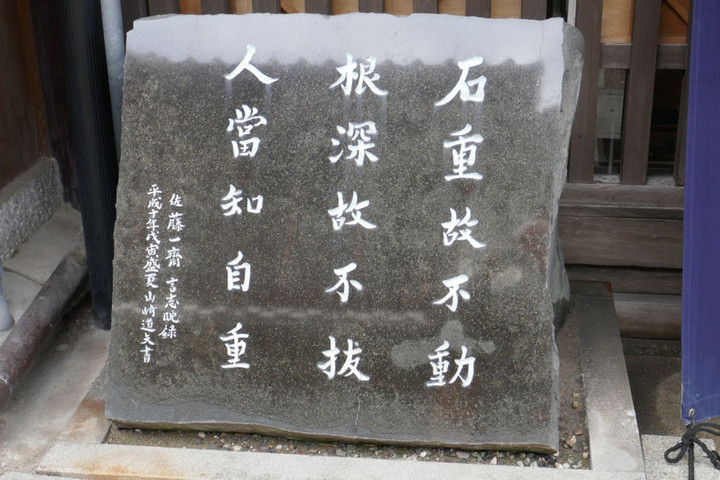 石重故不動
根深故不抜
人當知自重
佐藤一齋 言志晩録
平成十年戊寅盛夏 山崎道夫書